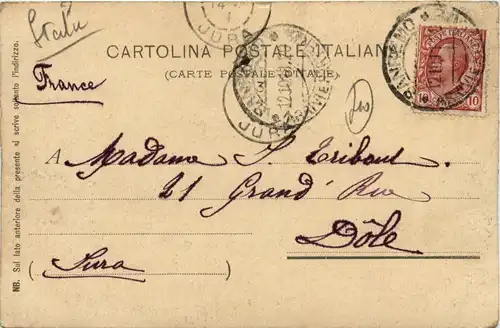 JURA
CARTOLINA POSTALE ITALIANA
(CARTE POSTALE D'ITALIE)
France
JURA
10 10
A Madame
21 Grand' Rue
Dôle
(Jura)
NB. Sul lato anteriore della presente si scrive soltanto l'indirizzo.